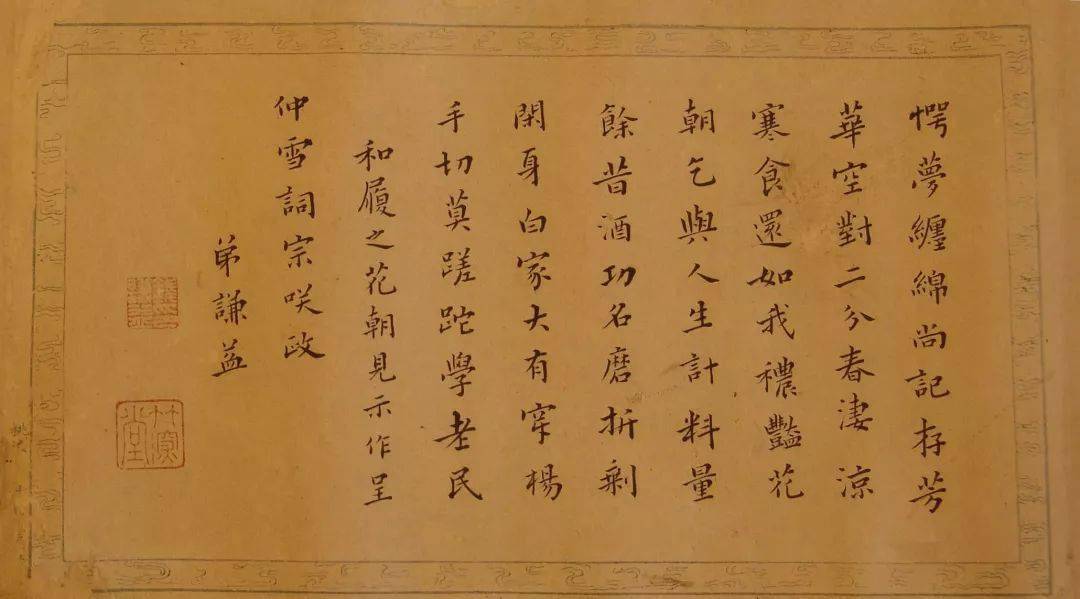 愕夢纏綿尚記存芳
華空對二分春淒涼
寒食還如我穠豔花
朝乞與人生計料量
餘昔酒功名磨折剩
閑身白家大有穿楊
手切莫蹉跎學老民
和履之花朝見示作呈
仲雪詞宗咲政
弟謙益